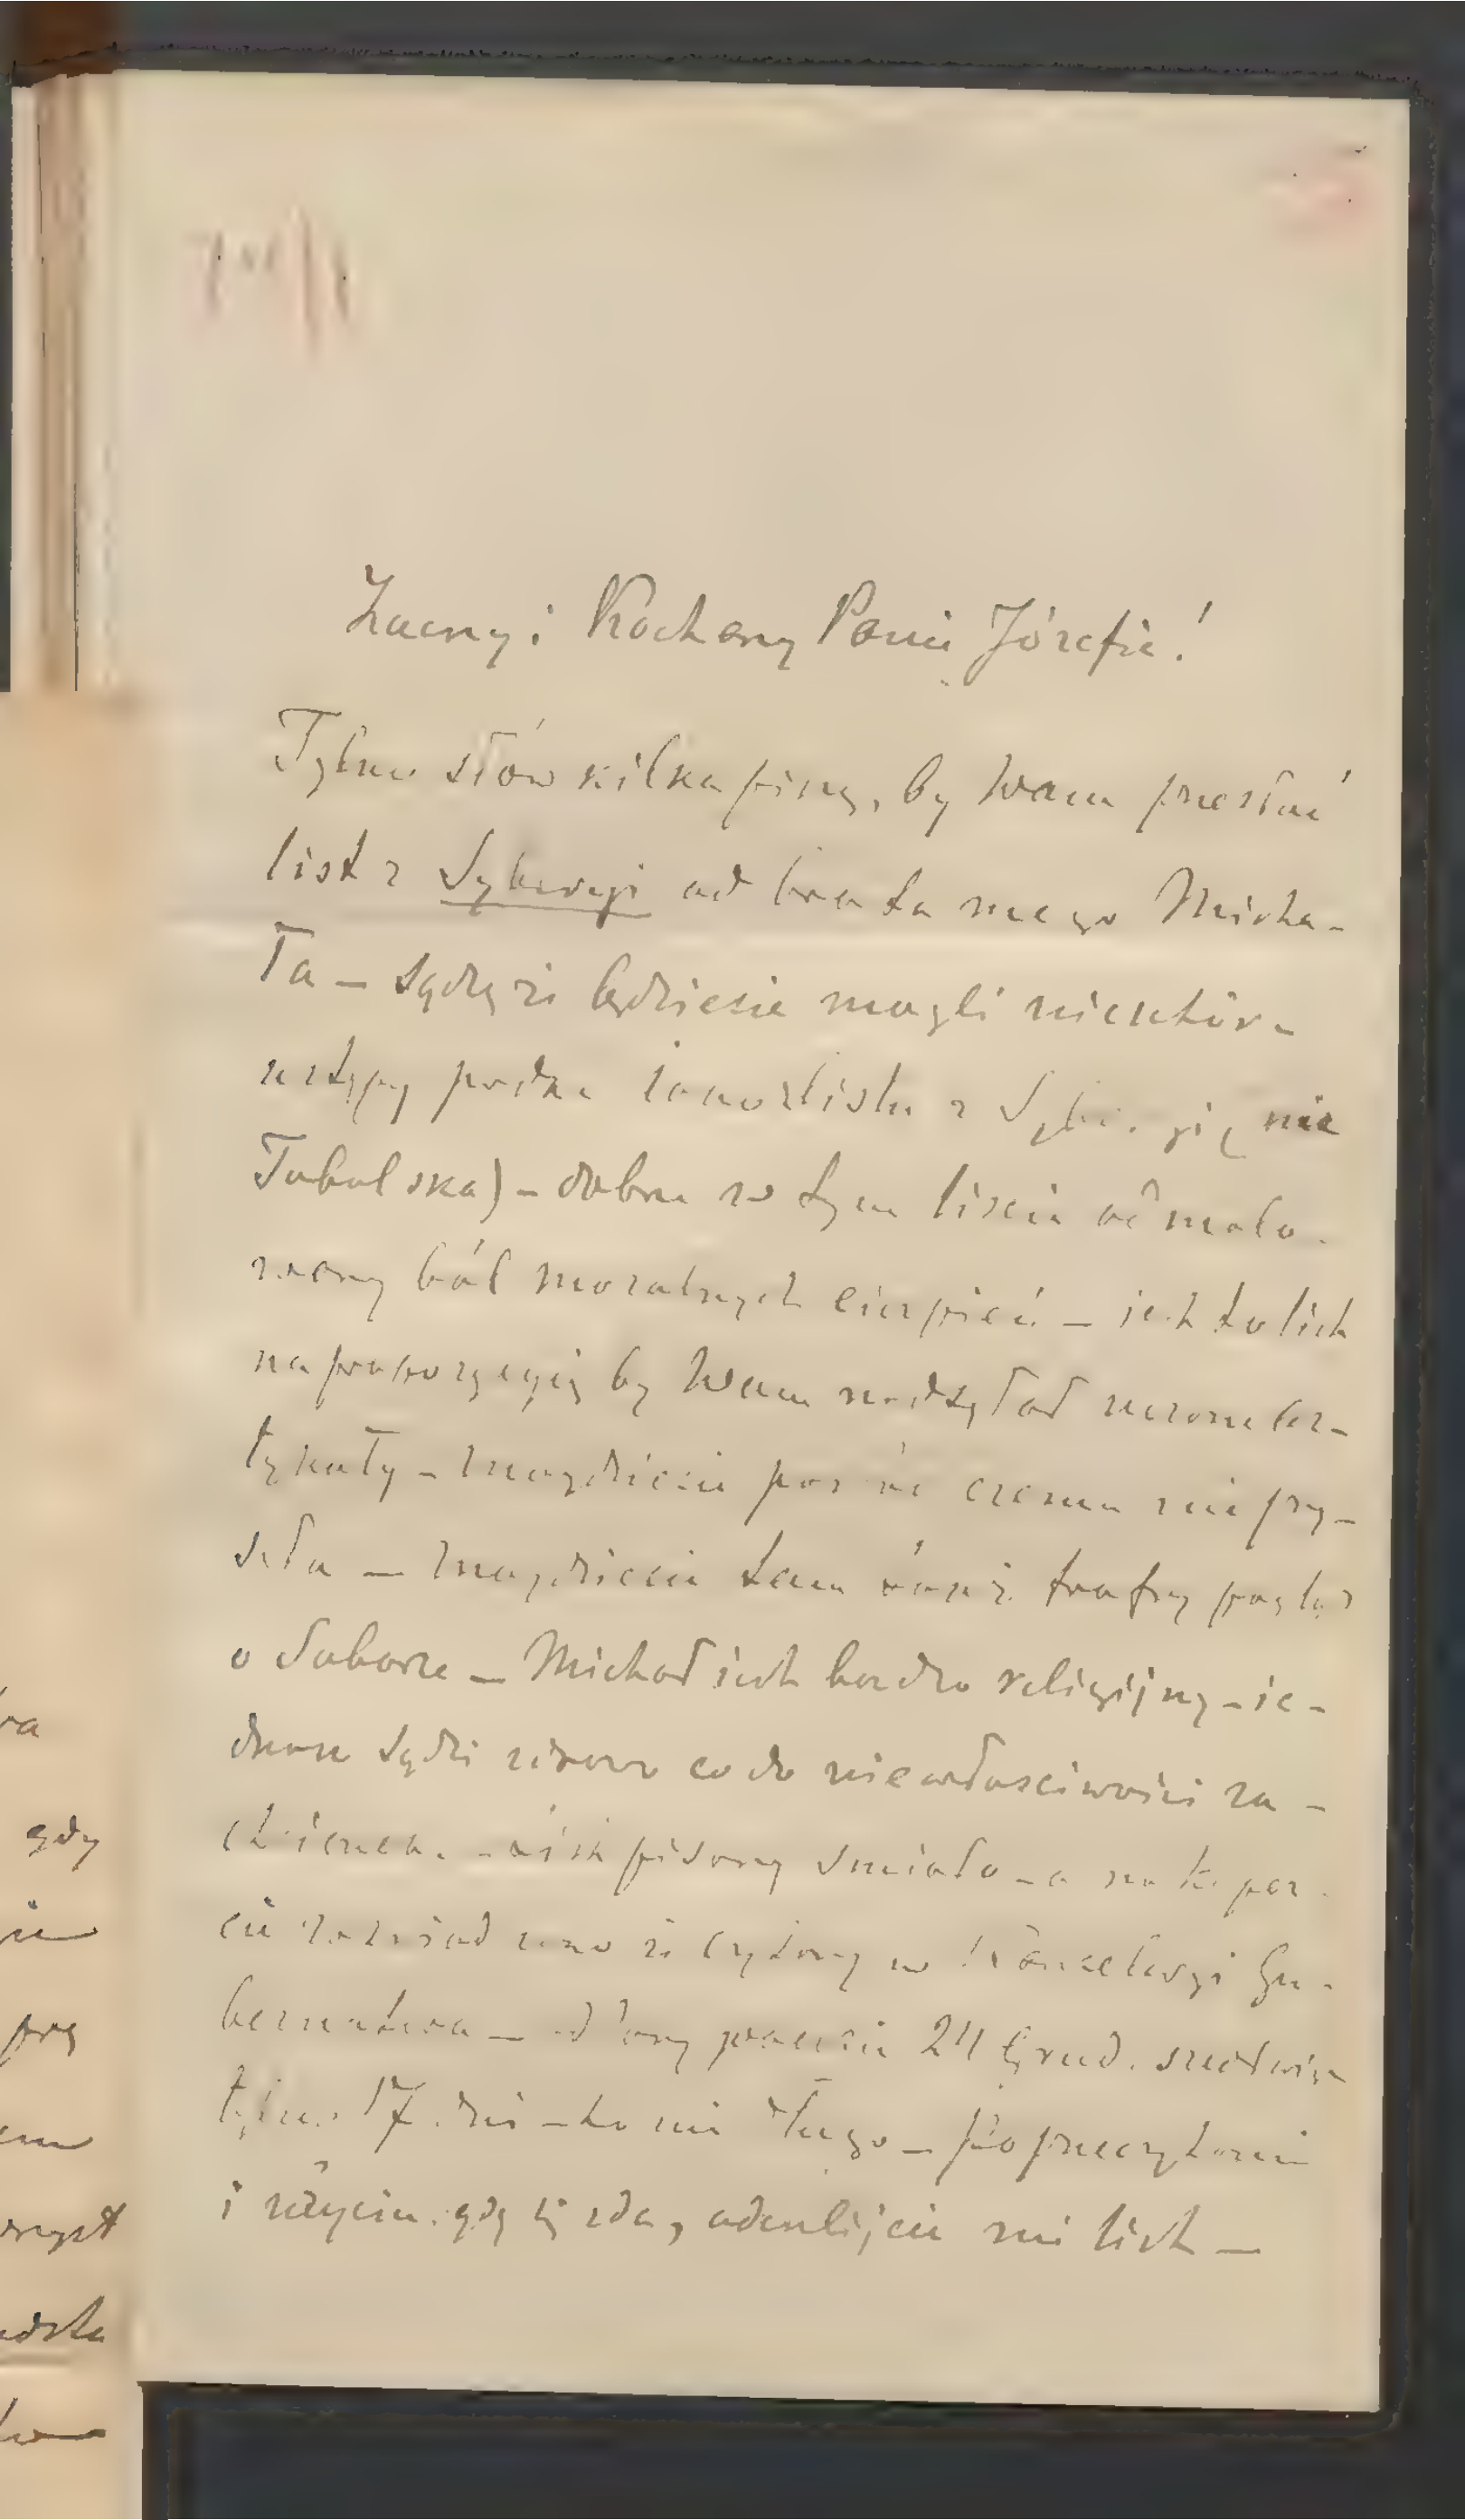 Zacny i Kochany Panie Józefie!
Tylko słów kilka piszę, by Wam przesłać
list z Syberyi od brata mego Micha-
ła – sądzę że będziecie mogli niektóre
ustępy podać iako z listu z Syberyi (nie
Tobolska) – dobrze w tym liscie odmalo-
wany ból moralnych cierpień – jest to list
na propozycyię by Wam nadsyłał ar-
tykuły – znajdziecie czemu nie przy-
seła – znajdziecie tam trafny pogląd
o Soborze – Michał jest bardzo religijny – ie-
dnak sądzi zdrowo co do niewłasciwości za-
chcianek. – list pisany smiało – a na koper-
cie zaświadczono że czytany w Kancelaryi Gu-
bernatora – oddany na poczcie 24 Grud. szedł więc
tylko 17 dni – to nie długo – Po przeczytaniu
i użyciu gdy się zda, odeslijcie mi list –
gdy